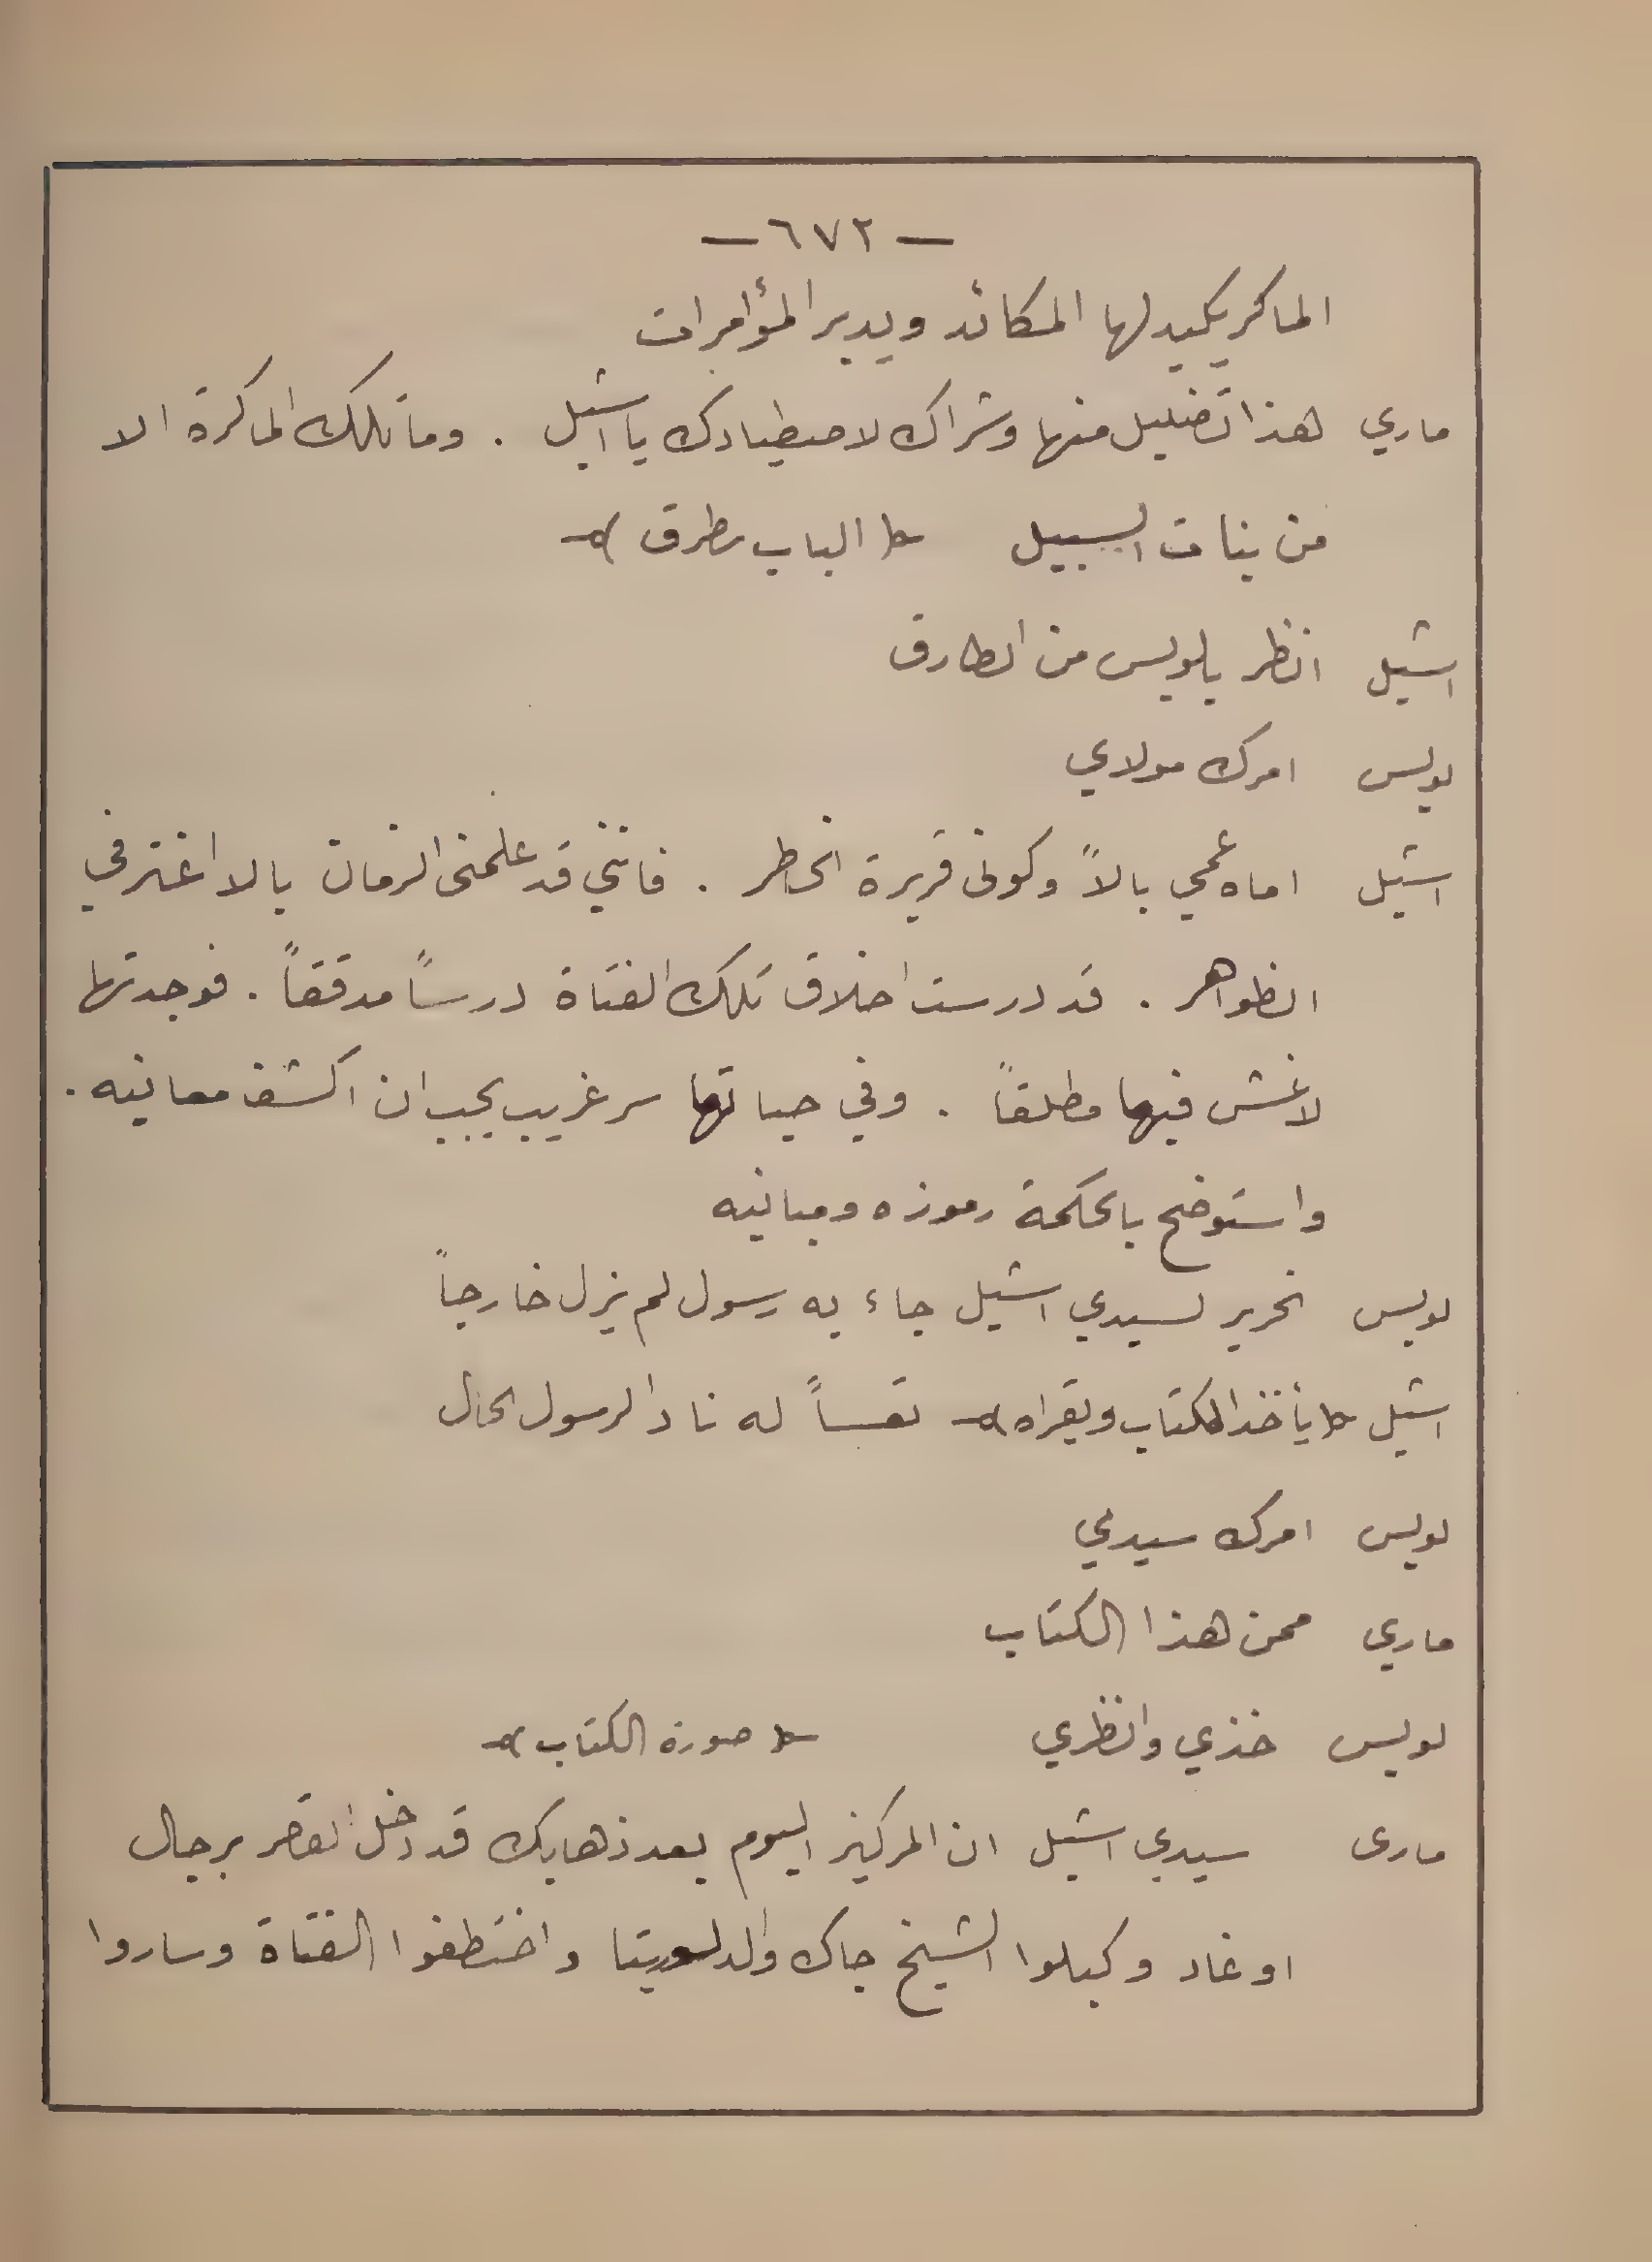 — ٦٧٢ —
الماكر يكيد لها المكائد ويدبر المؤامرات
ماري هذا تضليل منها وشراك لاصطيادك يا اشيل . وما تلك الماكرة الا
من بنات السبيل ( الباب يطرق )
اشيل انظر يالويس من الطارق
لويس امرك مولاي
اشيل اماه عمي بالاً وكوني قريرة الخاطر . فانني قد علمني الزمان بالا اغتر في
الظواهر . قد درست اخلاق تلك الفتاة درساً مدققاً . فوجدتها
لاغش فيها مطلقاً . وفي حياتها سر غريب يجب ان اكشف معانيه .
واستوضح بالحكمة رموزه ومبانيه
لويس تحرير لسيدي اشيل جاء به رسول لم يزل خارجاً
اشيل ( يأخذ الكتاب ويقراه ) تعساً له ناد الرسول الحال
لويس امرك سيدي
ماري ممن هذا الكتاب
لويس خذي وانظري ( صورة الكتاب )
مارى سيدي اشيل ان المركيز اليوم بعد ذهابك قد دخل القصر برجال
اوغاد وكبلوا الشيخ جاك والد لوريتا واختطفوا الفتاة وساروا